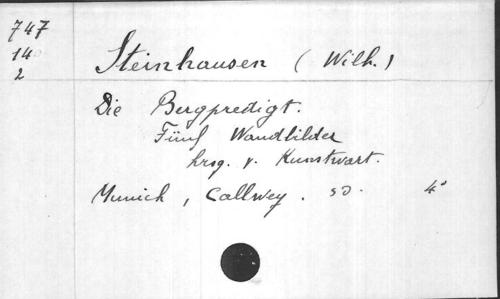 747
14
2
Steinhausen (Wilh.)
Die Bergpredigt.
Fünf Wandbilder
hrsg. v. Kunstwart.
Munich, Callwey. s d. 4°